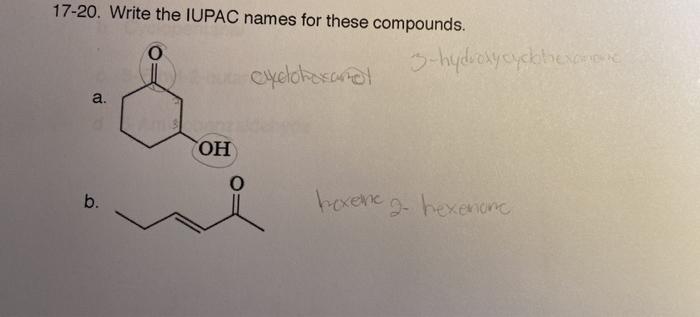 17-20. Write the IUPAC names for these compounds.
3-hydroxycyclohexanone
cyclohexanol
O
a.
OH
O
b.
hexene 2-hexenone